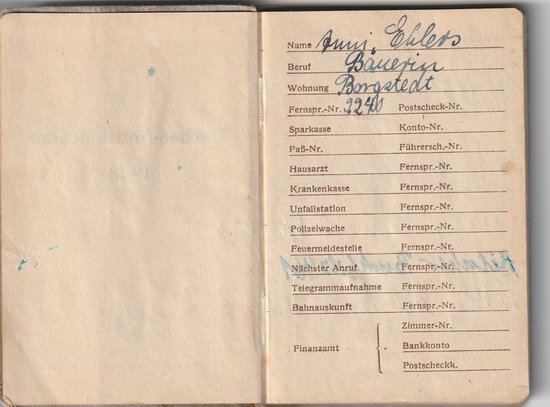 Name Anni Ehlers
Beruf Bäuerin
Wohnung Borgstedt
Fernspr.-Nr. 2240 Postscheck-Nr.
Sparkasse Konto-Nr.
Paß-Nr. Führersch.-Nr.
Hausarzt Fernspr.-Nr.
Krankenkasse Fernspr.-Nr.
Unfallstation Fernspr.-Nr.
Polizeiwache Fernspr.-Nr.
Feuermeldestelle Fernspr.-Nr.
Nächster Anruf Fernspr.-Nr.
Telegrammaufnahme Fernspr.-Nr.
Bahnauskunft Fernspr.-Nr.
Zimmer-Nr.
Finanzamt Bankkonto
Postscheckk.